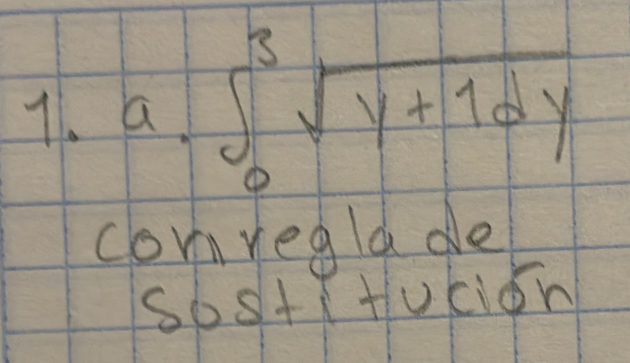 1. a. ∫₀³ √(y+1dy)
con regla de
sostitución